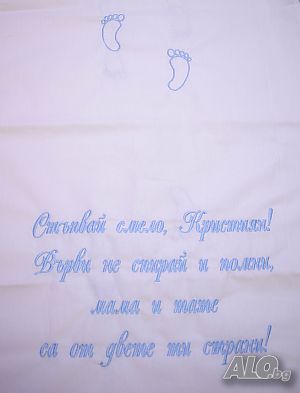 Стъпвай смело, Кристиян!
Върви не спирай и помни,
мама и тате
са от двете ти страни!
ALO.bg